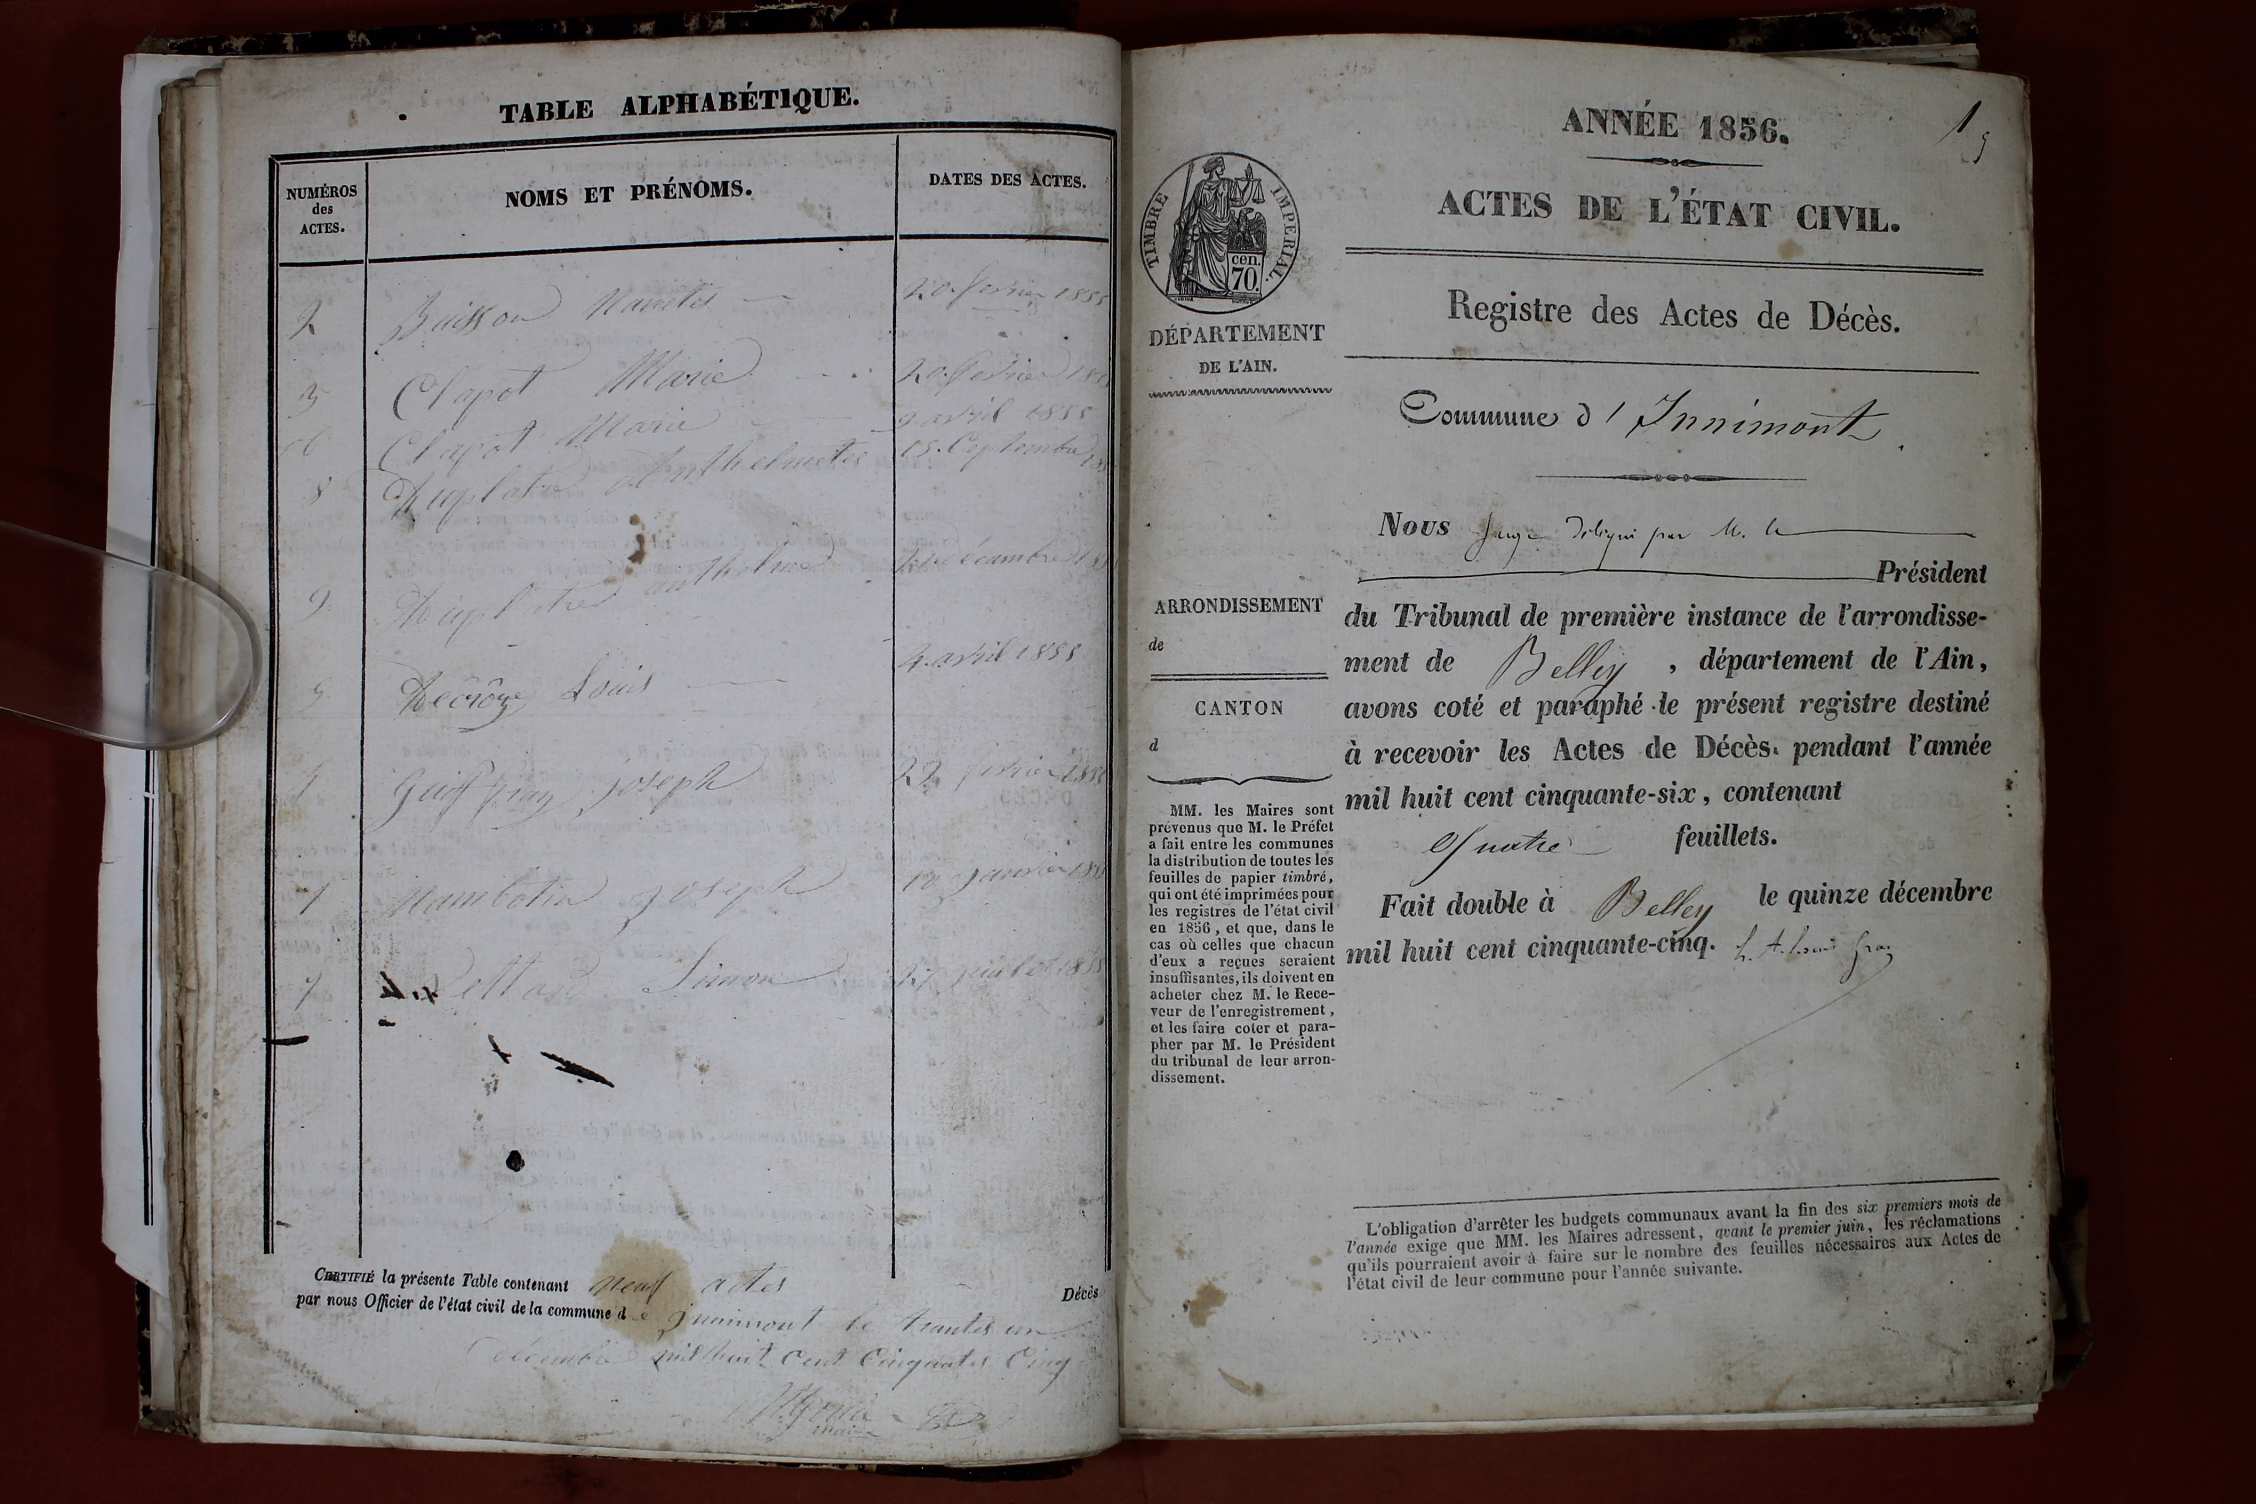 TABLE ALPHABÉTIQUE.
NUMÉROS
des
ACTES.
NOMS ET PRÉNOMS.
DATES DES ACTES.
2 Buisson 20 fevrier 1855
3 Clapot Marie 20 fevrier
6 Clapot Marie 9 avril 1855
8 Duplatre 15 Septembre
9 Duplatre anthelme
5 Décrôze Louis 4 avril 1855
Joseph 22 fevrier 1855
1 Joseph 10 janvier
7 Simon
CERTIFIÉ la présente Table contenant neuf actes Décès
par nous Officier de l'état civil de la commune d e Innimont le trante un
décembre mil huit cent Cinquante Cinq
maire
ANNÉE 1856.
1
ACTES DE L'ÉTAT CIVIL.
TIMBRE IMPERIAL.
cen.
70.
DÉPARTEMENT
DE L'AIN.
Registre des Actes de Décès.
Commune d' Innimont
Nous Juge délégué par M. le
Président
du Tribunal de première instance de l'arrondisse-
ment de Belley, département de l'Ain,
avons coté et paraphé le présent registre destiné
à recevoir les Actes de Décès pendant l'année
mil huit cent cinquante-six, contenant
Quatre feuillets.
Fait double à Belley le quinze décembre
mil huit cent cinquante-cinq.
ARRONDISSEMENT
de
CANTON
d
MM. les Maires sont
prévenus que M. le Préfet
a fait entre les communes
la distribution de toutes les
feuilles de papier timbré,
qui ont été imprimées pour
les registres de l'état civil
en 1856, et que, dans le
cas où celles que chacun
d'eux a reçues seraient
insuffisantes, ils doivent en
acheter chez M. le Rece-
veur de l'enregistrement,
et les faire coter et para-
pher par M. le Président
du tribunal de leur arron-
dissement.
L'obligation d'arrêter les budgets communaux avant la fin des six premiers mois de
l'année exige que MM. les Maires adressent, avant le premier juin, les réclamations
qu'ils pourraient avoir à faire sur le nombre des feuilles nécessaires aux Actes de
l'état civil de leur commune pour l'année suivante.